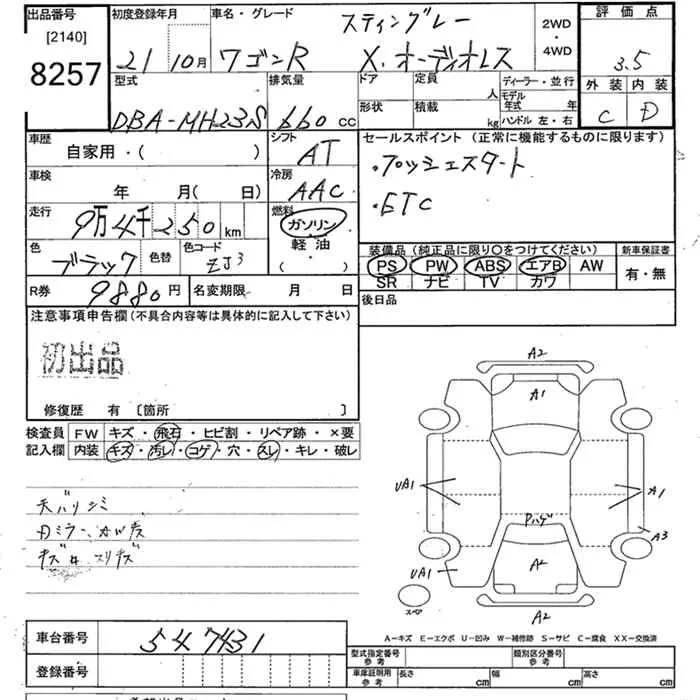 出品番号 初度登録年月 車名・グレード スティングレー 2WD・4WD 評価点
[2140]
8257 21 10月 ワゴンR X.オーディオレス 3.5
型式 排気量 ドア 定員 人 ディーラー・並行 外装 内装
DBA-MH23S 660 cc 形状 積載 kg モデル年式 年 ハンドル 左・右 C D
車歴 自家用・( ) シフト AT セールスポイント (正常に機能するものに限ります)
車検 年 月( 日) 冷房 AAC ・プッシュスタート
走行 9万4千250km 燃料 ガソリン ・ETC
軽油
( )
色 ブラック 色替 色コード ZJ3 装備品(純正品に限り〇をつけてください) 新車保証書
PS PW ABS エアB AW 有・無
SR ナビ TV カワ
R券 9880円 名変期限 月 日 後日品
注意事項申告欄(不具合内容等は具体的に記入して下さい)
初出品
修復歴 有 [箇所 ]
検査員 FW キズ・飛石・ヒビ割・リペア跡・×要
記入欄 内装 キズ・汚レ・コゲ・穴・スレ・キレ・破レ
天バリシミ
キズ
A2
A1
UA1
A1
A3
Pハゲ
A2
UA1
スペア
A2
A-キズ E-エクボ U-凹み W-補修跡 S-サビ C-腐食 XX-交換済
車台番号 547431
登録番号
型式指定番号 参考 類別区分番号 参考
車庫証明用 参考 長さ cm 幅 cm 高さ cm